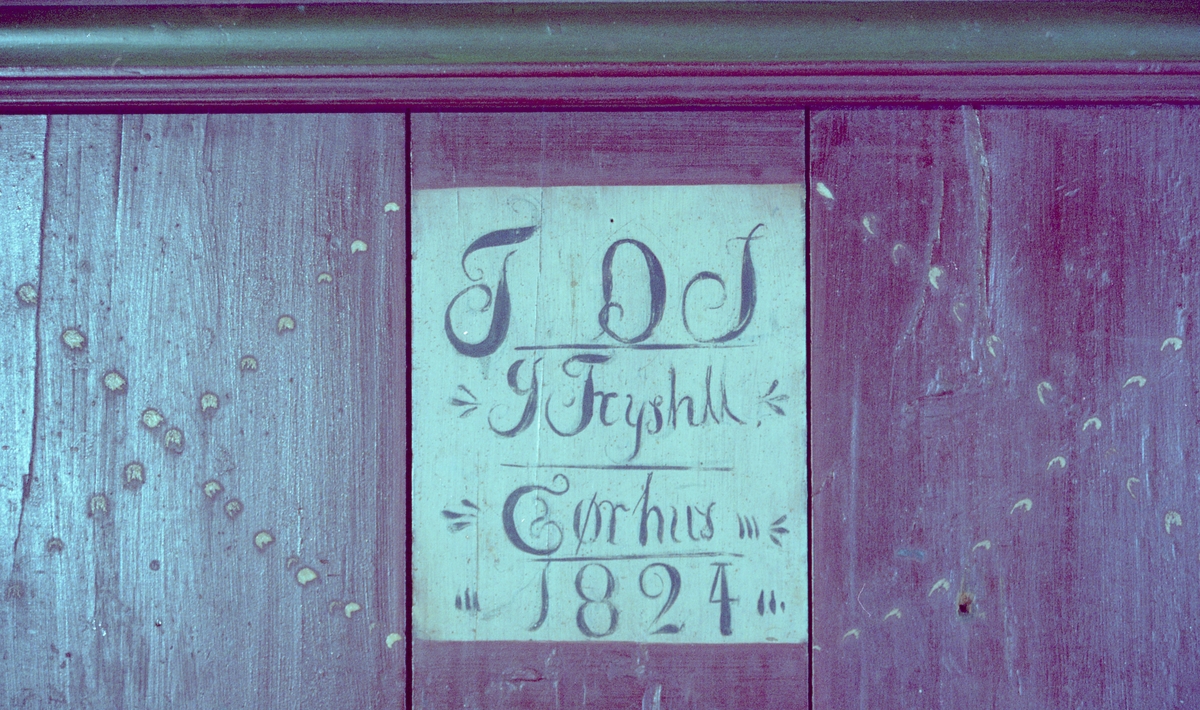 T D S
I Fryshll.
Corhus
1824